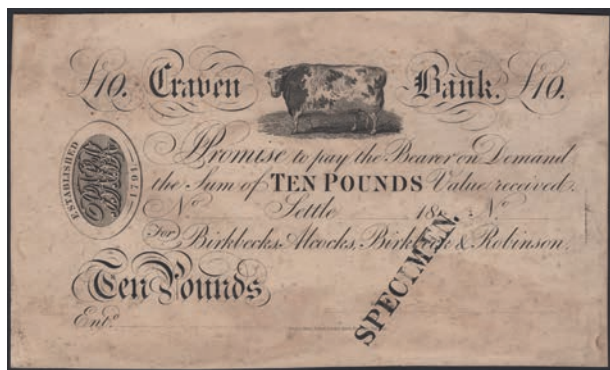 £10. Craven Bank. £10.
ESTABLISHED 1791
I Promise to pay the Bearer on Demand
the Sum of TEN POUNDS Value received.
No. Settle 18 No.
For Birkbecks, Alcocks, Birkbeck & Robinson.
Ten Pounds
Entd.
SPECIMEN.